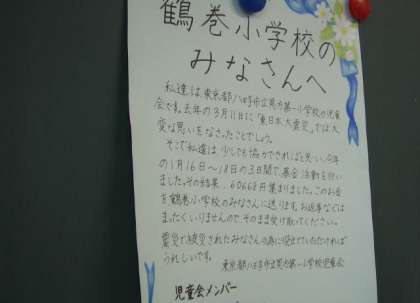 鶴巻小学校の
みなさんへ
私達は、東京都八王子市立恩方第一小学校の児童
会です。去年の3月11日に「東日本大震災」では大
変な思いをなさったことでしょう。
そこで私達は、少しでも協力できればと思い、今年
の1月16日~18日の3日間で、募金活動を行い
ました。その結果、60668円集まりました。このお金
を鶴巻小学校のみなさんに送ります。お返事などは
まったくいりませんので、そのまま受け取ってください。
震災で被災されたみなさんの為に役立てていただければ
うれしいです。
東京都八王子市立恩方第一小学校児童会
児童会メンバー